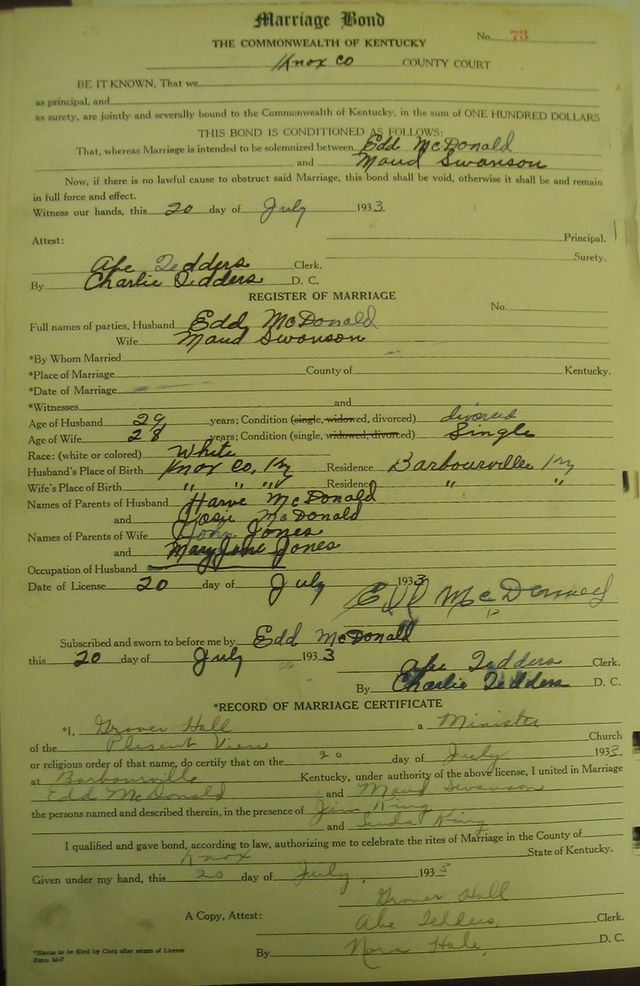 Marriage Bond
No. 73
THE COMMONWEALTH OF KENTUCKY
Knox Co COUNTY COURT
BE IT KNOWN, That we
as principal, and
as surety, are jointly and severally bound to the Commonwealth of Kentucky, in the sum of ONE HUNDRED DOLLARS
THIS BOND IS CONDITIONED AS FOLLOWS:
That, whereas Marriage is intended to be solemnized between Edd McDonald
and Maud Swanson
Now, if there is no lawful cause to obstruct said Marriage, this bond shall be void, otherwise it shall be and remain
in full force and effect.
Witness our hands, this 20 day of July 1933.
Attest: Principal.
Surety.
Abe Tedders Clerk.
By Charlie Tedders D. C.
REGISTER OF MARRIAGE
No.
Full names of parties, Husband Edd McDonald
Wife Maud Swanson
*By Whom Married
*Place of Marriage County of Kentucky.
*Date of Marriage
*Witnesses and
Age of Husband 29 years; Condition (single, widowed, divorced) divorced
Age of Wife 28 years; Condition (single, widowed, divorced) Single
Race: (white or colored) White
Husband's Place of Birth Knox Co, Ky Residence Barbourville Ky
Wife's Place of Birth " " " Residence " "
Names of Parents of Husband Harve McDonald
and Josie McDonald
Names of Parents of Wife John Jones
and Mary Jane Jones
Occupation of Husband
Date of License 20 day of July 1933
Edd McDonald
Subscribed and sworn to before me by Edd McDonald
this 20 day of July 1933
Abe Tedders Clerk.
By Charlie Tedders D. C.
*RECORD OF MARRIAGE CERTIFICATE
*I, Grover Hall a Minister
of the Plesent View Church
or religious order of that name, do certify that on the 20 day of July 1933
at Barbourville Kentucky, under authority of the above license, I united in Marriage
Edd McDonald and Maud Swanson
the persons named and described therein, in the presence of Jim King
and King
I qualified and gave bond, according to law, authorizing me to celebrate the rites of Marriage in the County of
Knox State of Kentucky.
Given under my hand, this 20 day of July, 1933
Grover Hall
A Copy, Attest: Abe Tedders, Clerk.
By Nora Hale, D. C.
*Blanks to be filled by Clerk after return of License